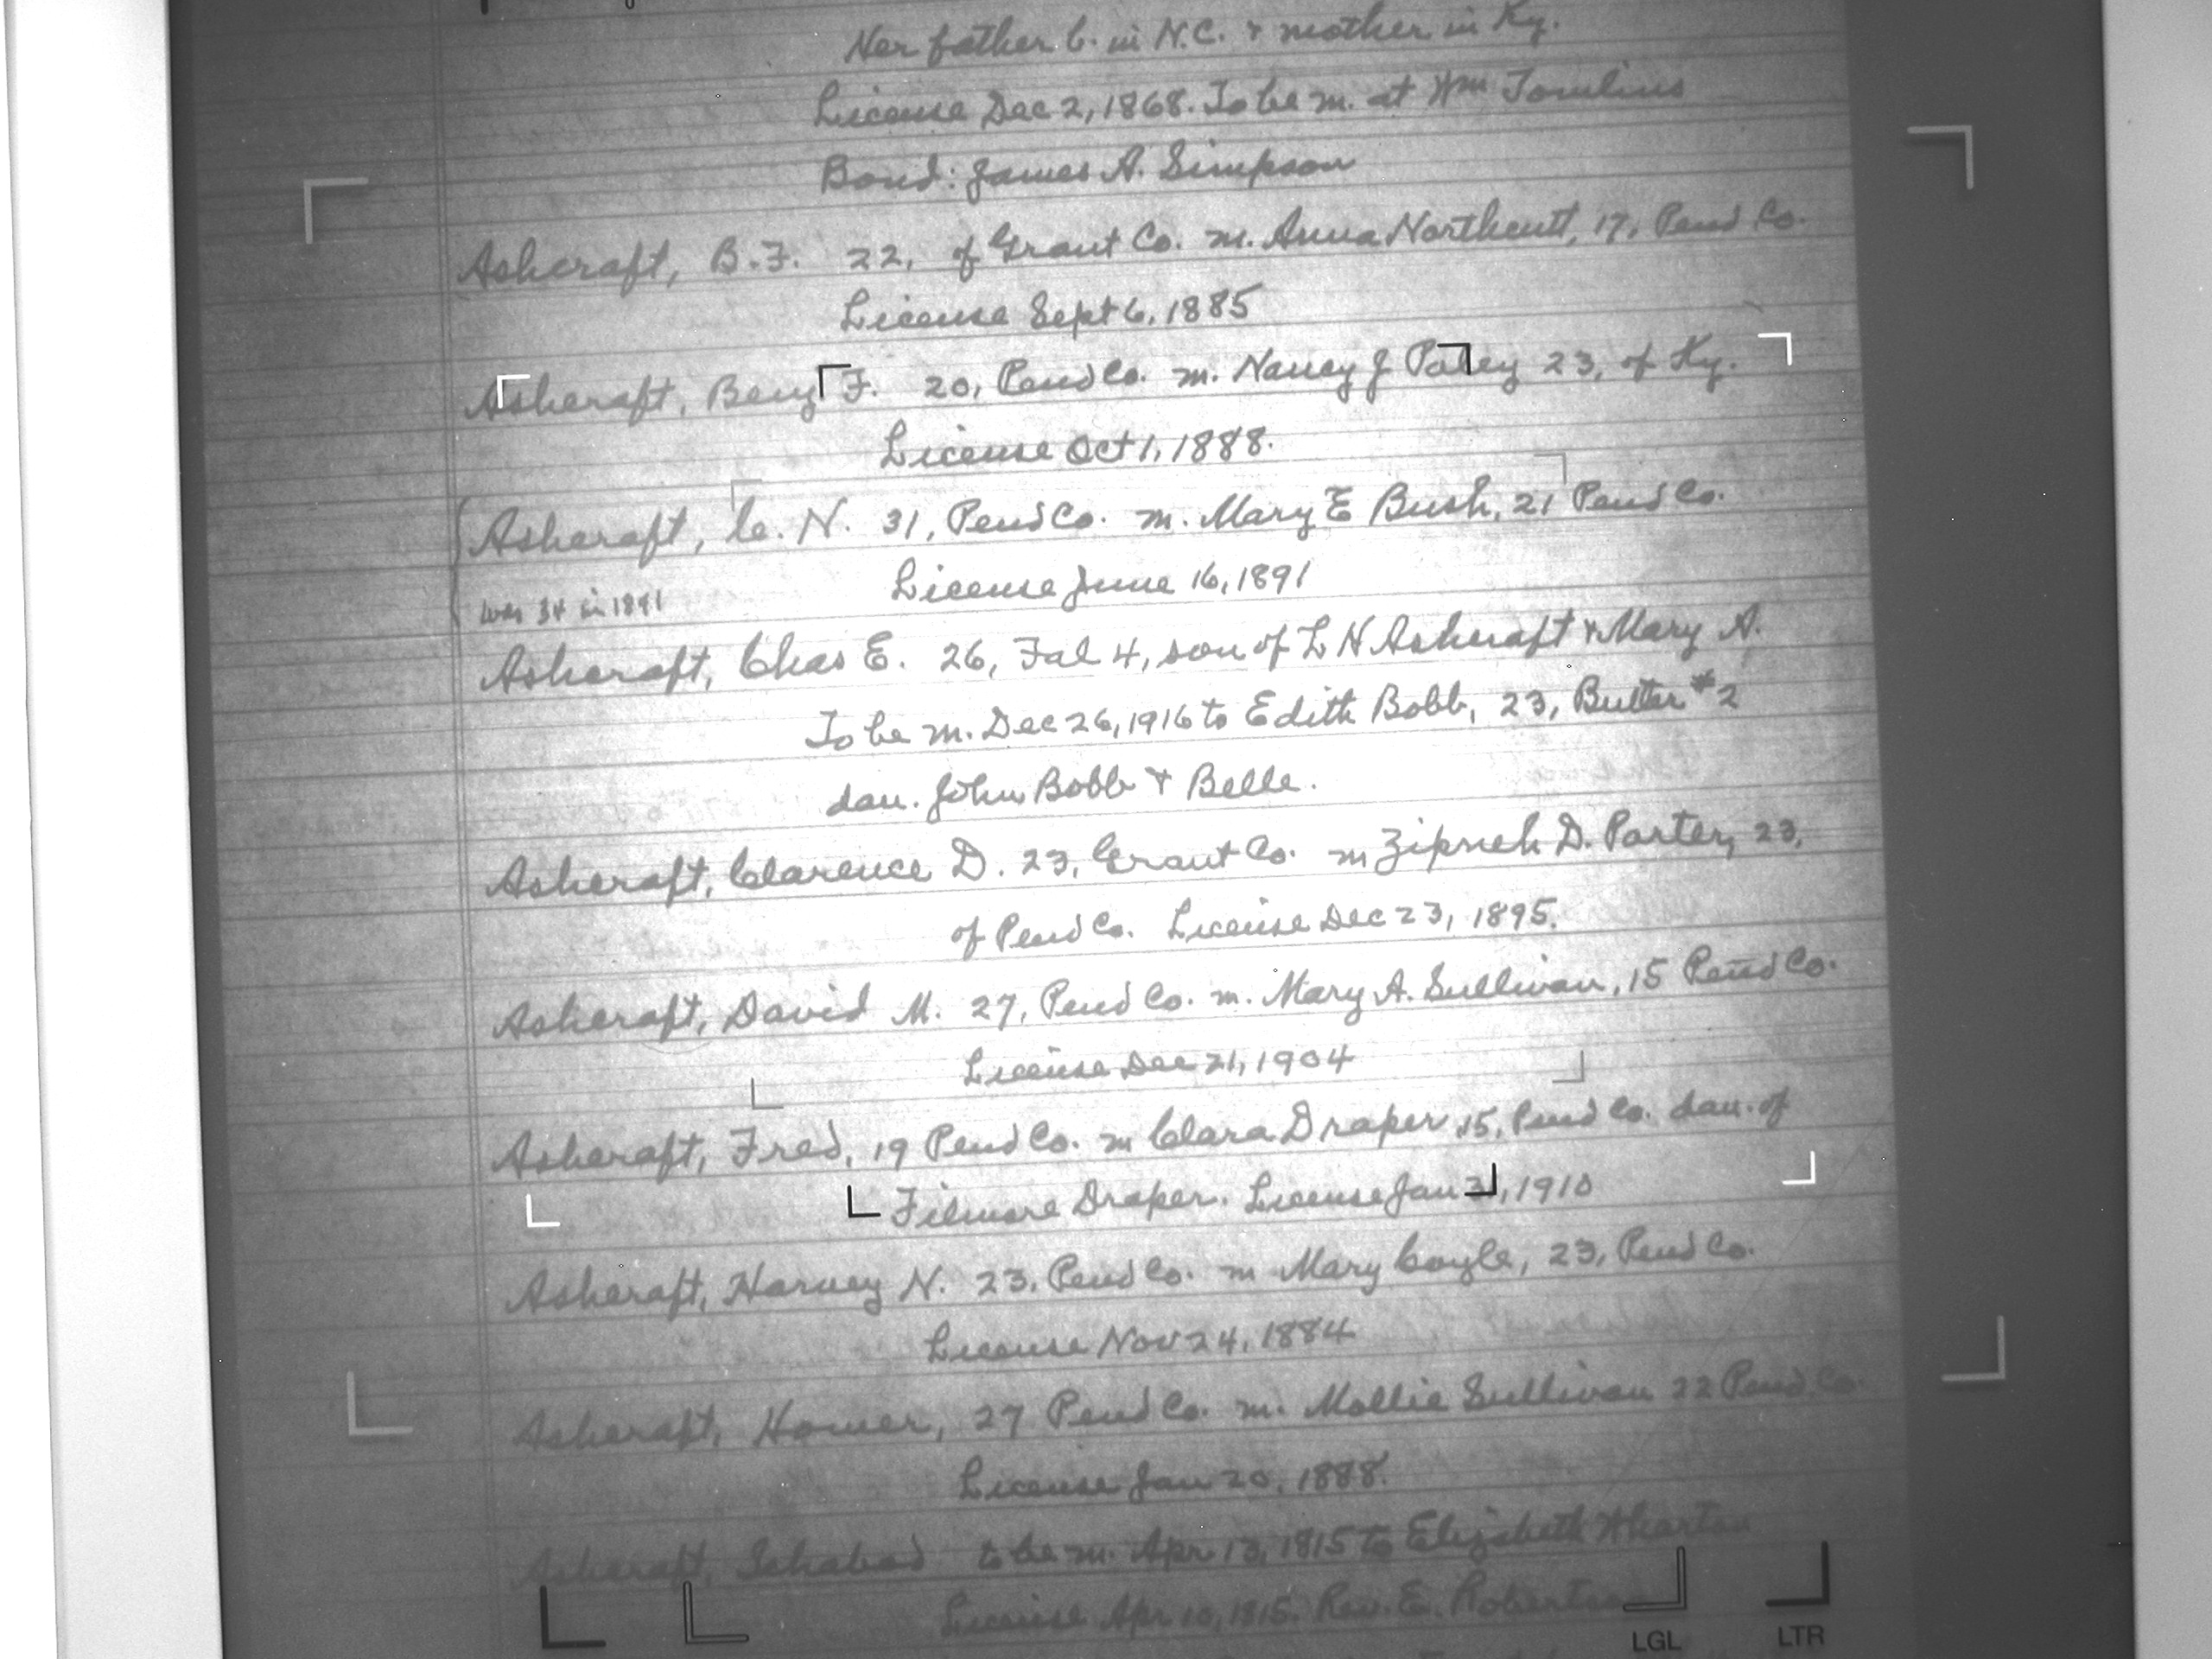 Her father b. in N.C. & mother in Ky.
License Dec 2, 1868. To be m. at Wm Tomlins
Bond: James A. Simpson
Ashcraft, B.F. 22, of Grant Co. m. Anna Northcutt, 17, Pend Co.
License Sept 6, 1885
Ashcraft, Benj F. 20, Pend Co. m. Nancy J 23, of Ky.
License Oct 1, 1888.
Ashcraft, C. N. 31, Pend Co. m. Mary E Bush, 21 Pend Co.
License June 16, 1891
was 34 in 1891
Ashcraft, Chas E. 26, Fal 4, son of L N Ashcraft & Mary A.
To be m. Dec 26, 1916 to Edith Bobb, 23, Butler #2
dau. John Bobb & Belle.
Ashcraft, Clarence D. 23, Grant Co. m D. Porter, 23,
of Pend Co. License Dec 23, 1895.
Ashcraft, David M. 27, Pend Co. m. Mary A. Sullivan, 15 Pend Co.
License Dec 21, 1904
Ashcraft, Fred, 19 Pend Co. m Clara Draper, 15, Pend Co. dau. of
Filmore Draper. License Jan , 1910
Ashcraft, Harvey N. 23, Pend Co. m Mary Coyle, 23, Pend Co.
License Nov 24, 1884
Ashcraft, Homer, 27 Pend Co. m. Mollie Sullivan 22 Pend Co.
License Jan 20, 1888.
Ashcraft, Ichabod to be m. Apr 13, 1815 to Elizabeth Wharton
License Apr 10, 1815. Rev. E. Robertson
LGL LTR